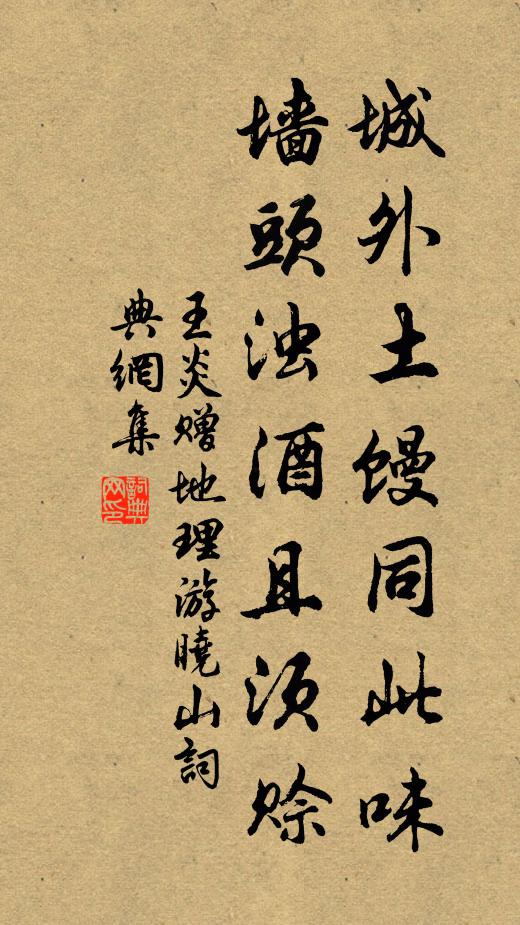 城外土馒同此味
墙头浊酒且须赊
王炎赠地理游曉山詞
典網集
詞典網印